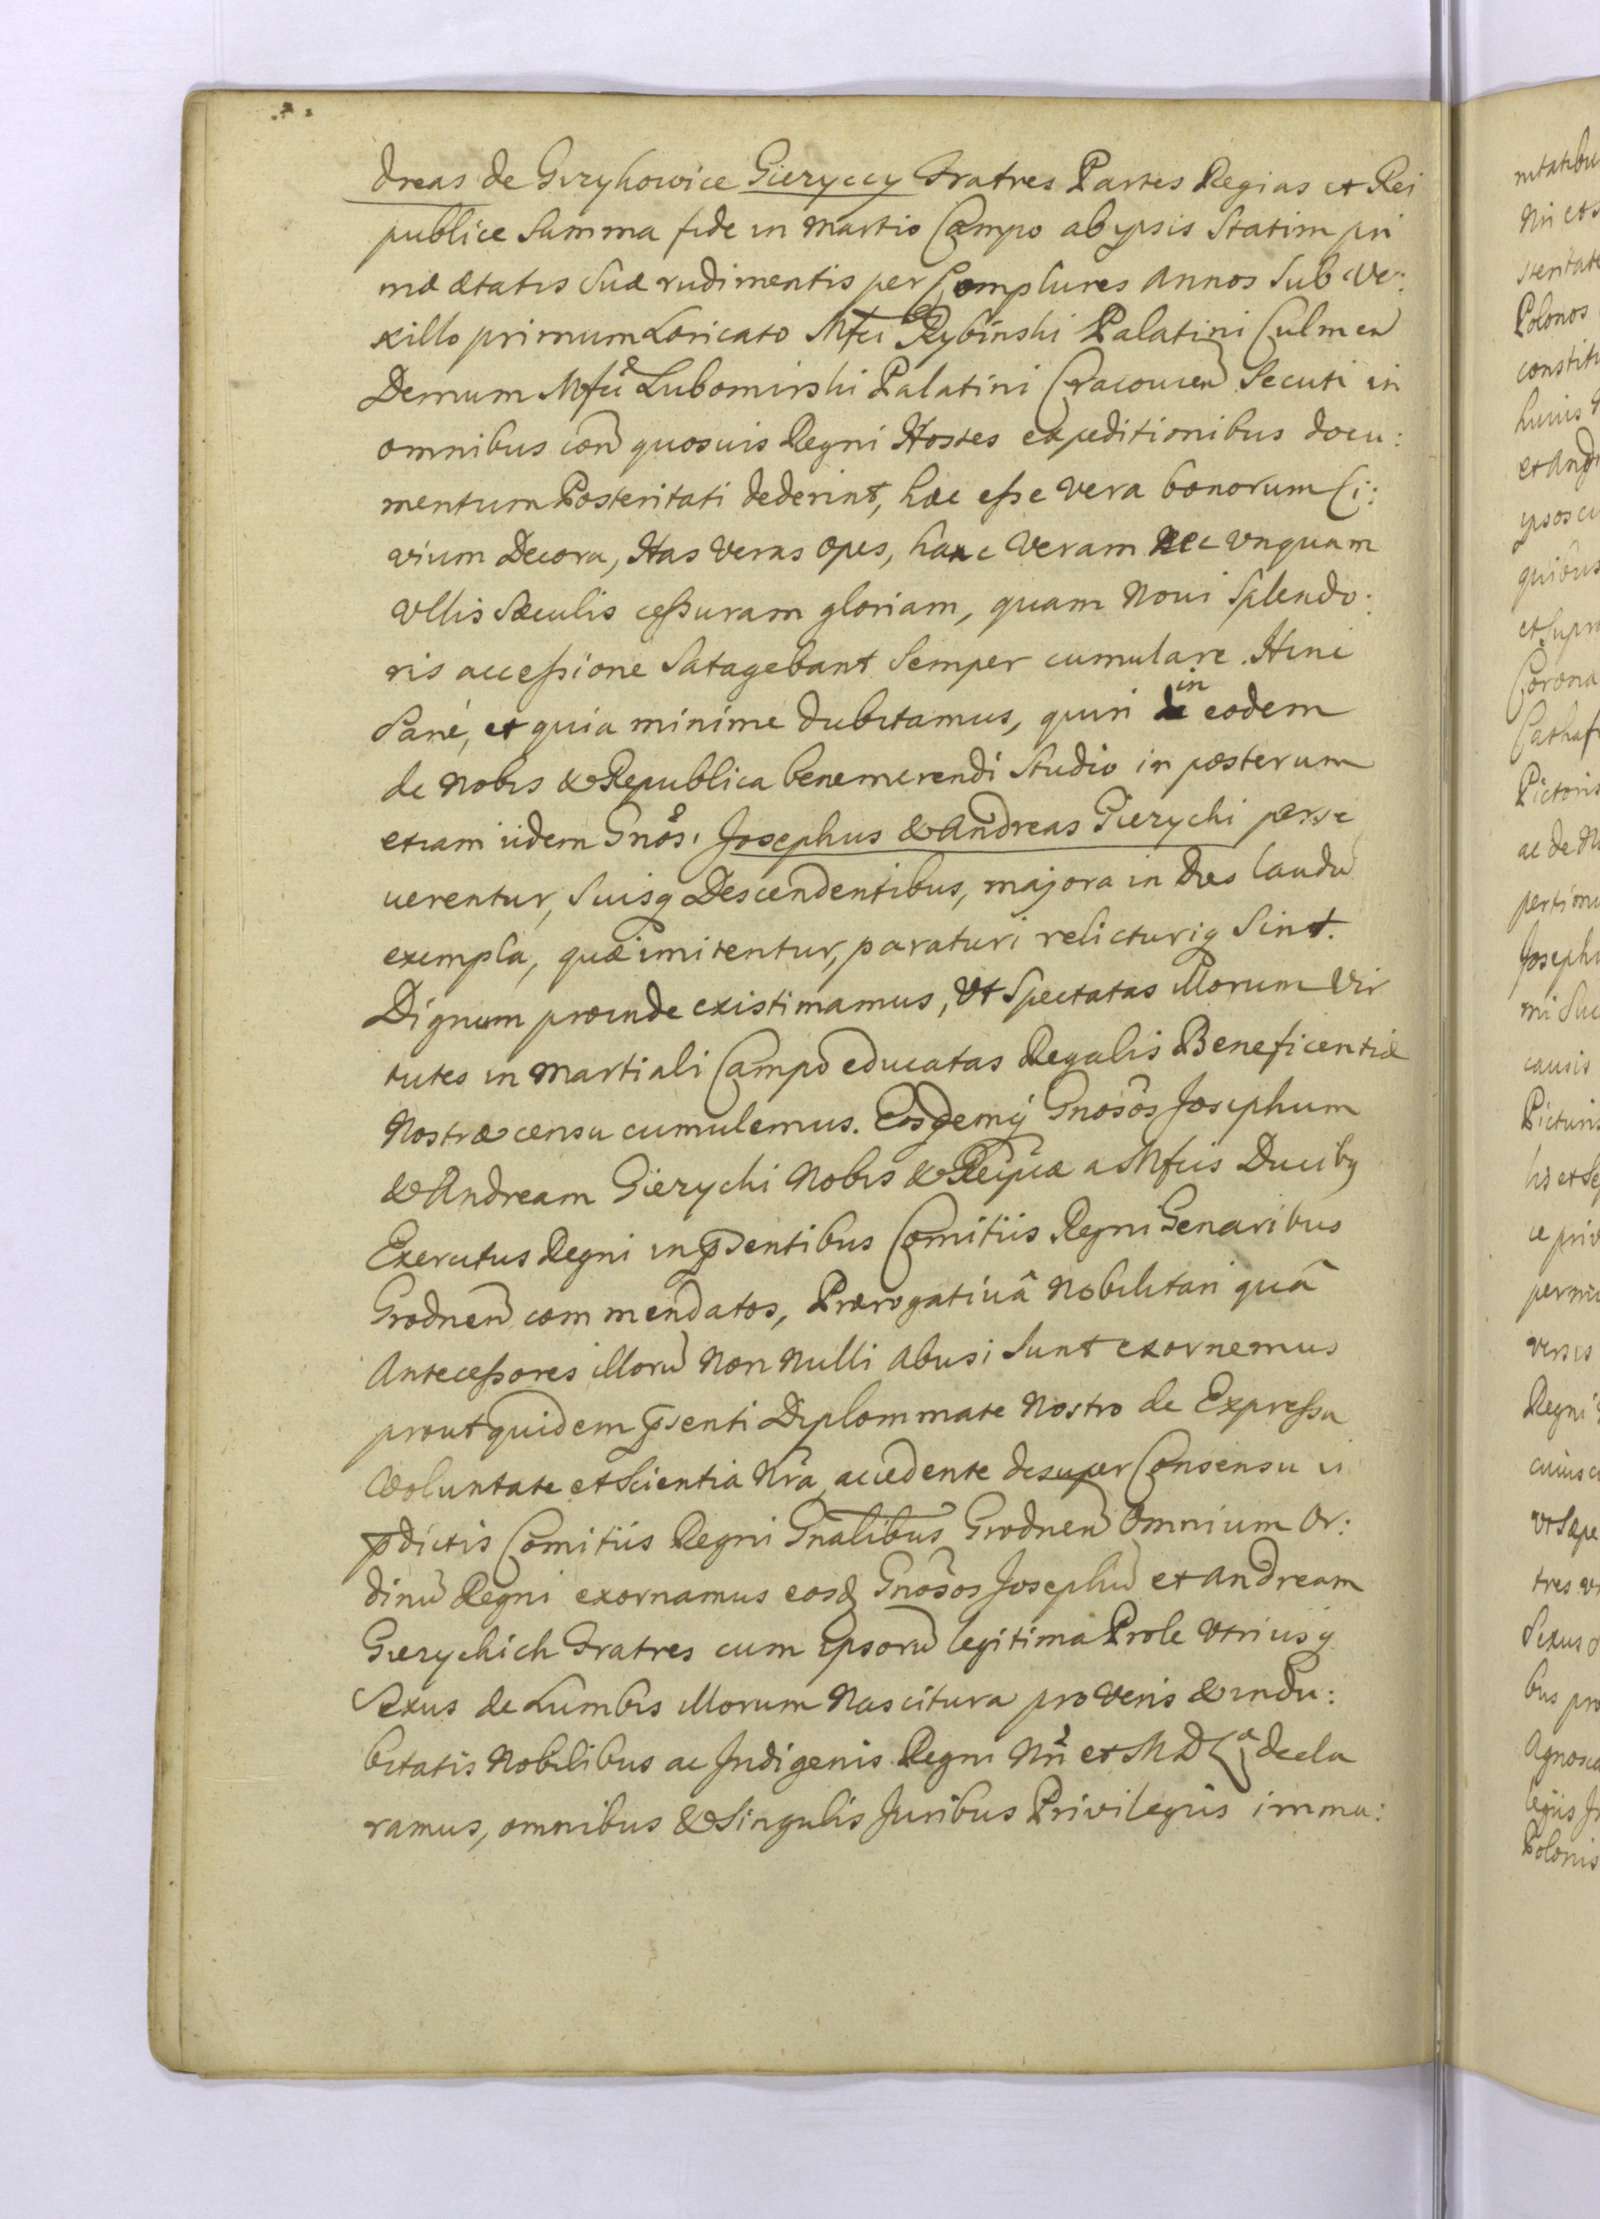 dreas de Gierykowice Gieryccy Fratres Partes Regias et Rei
publice Summa fide in Martio Campo ab ipsis Statim pri
mæ ætatis Suæ rudimentis per Complures Annos Sub Ve:
xillo primum Loricato Mfci Rybinski Palatini Culmen
Demum Mfci Lubomirski Palatini Cracovien Secuti in
omnibus con quosuis Regni Hostes expeditionibus docu:
mentum Posteritati dederint, hæc eſse vera bonorum Ci:
vium Decora, Has Veras opes, hanc Veram nec vnquam
Vllis Sæculis ceſsuram gloriam, quam Noui Splendo:
ris acceſsione Satagebant Semper cumulare. Hinc
Sané, et quia minime dubitamus, quin in eodem
de Nobis & Republica benemerendi Studio in posterum
etiam iidem Gnosi Josephus & Andreas Gierychi perse
uerentur, Suisq Descendentibus, majora in dies laudu
exempla, quæ imitentur, paraturi relicturiq Sint.
Dignum proinde existimamus, Vt Spectatas illorum Vir
tutes in Martiali Campo educatas Regalis Beneficentiæ
Nostræ censu cumulemus. Eosdemq Gnosos Josephum
& Andream Gierychi Nobis & Reipcæ a Mfcis Ducibq
Exercitus Regni in pſentibus Comitiis Regni Genaribus
Grodnen commendatos, Prærogativâ Nobilitari quâ
Anteceſsores illoru Non Nulli abusi Sunt exornemus
prout quidem pſenti Diplommate Nostro de Expreſsa
Voluntate et Scientia Nra, accedente desuper Consensu in
pdictis Comitiis Regni Gnalibus Grodnen Omnium Or:
dinu Regni exornamus eosd Gnosos Josephu et Andream
Gierychich Fratres cum ipsoru legitima Prole Vtriusq
Sexus de Lumbis illorum Nascitura pro Veris & indu:
bitatis Nobilibus ac Indigenis Regni Nri et M D L decla
ramus, omnibus & Singulis Juribus Privilegiis immu: